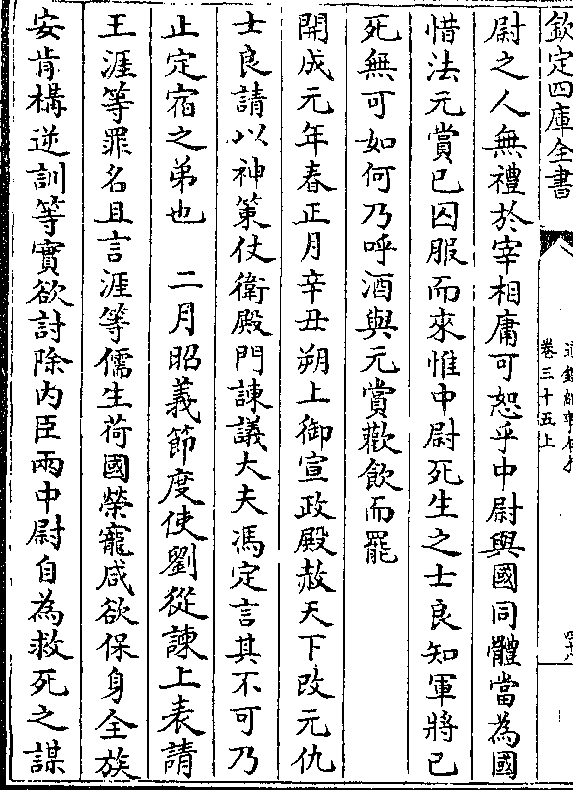 欽定四庫全書
卷三十五上
尉之人無禮於宰相庸可恕乎中尉與國同體當為國
惜法元賞已囚服而來惟中尉死生之士良知軍將已
死無可如何乃呼酒與元賞歡飲而罷
開成元年春正月辛丑朔上御宣政殿赦天下改元仇
士良請以神策仗衛殿門諫議大夫馮定言其不可乃
止定宿之弟也　二月昭義節度使劉從諫上表請
王涯等罪名且言涯等儒生荷國榮寵咸欲保身全族
安肯構逆訓等實欲討除内臣兩中尉自為救死之謀